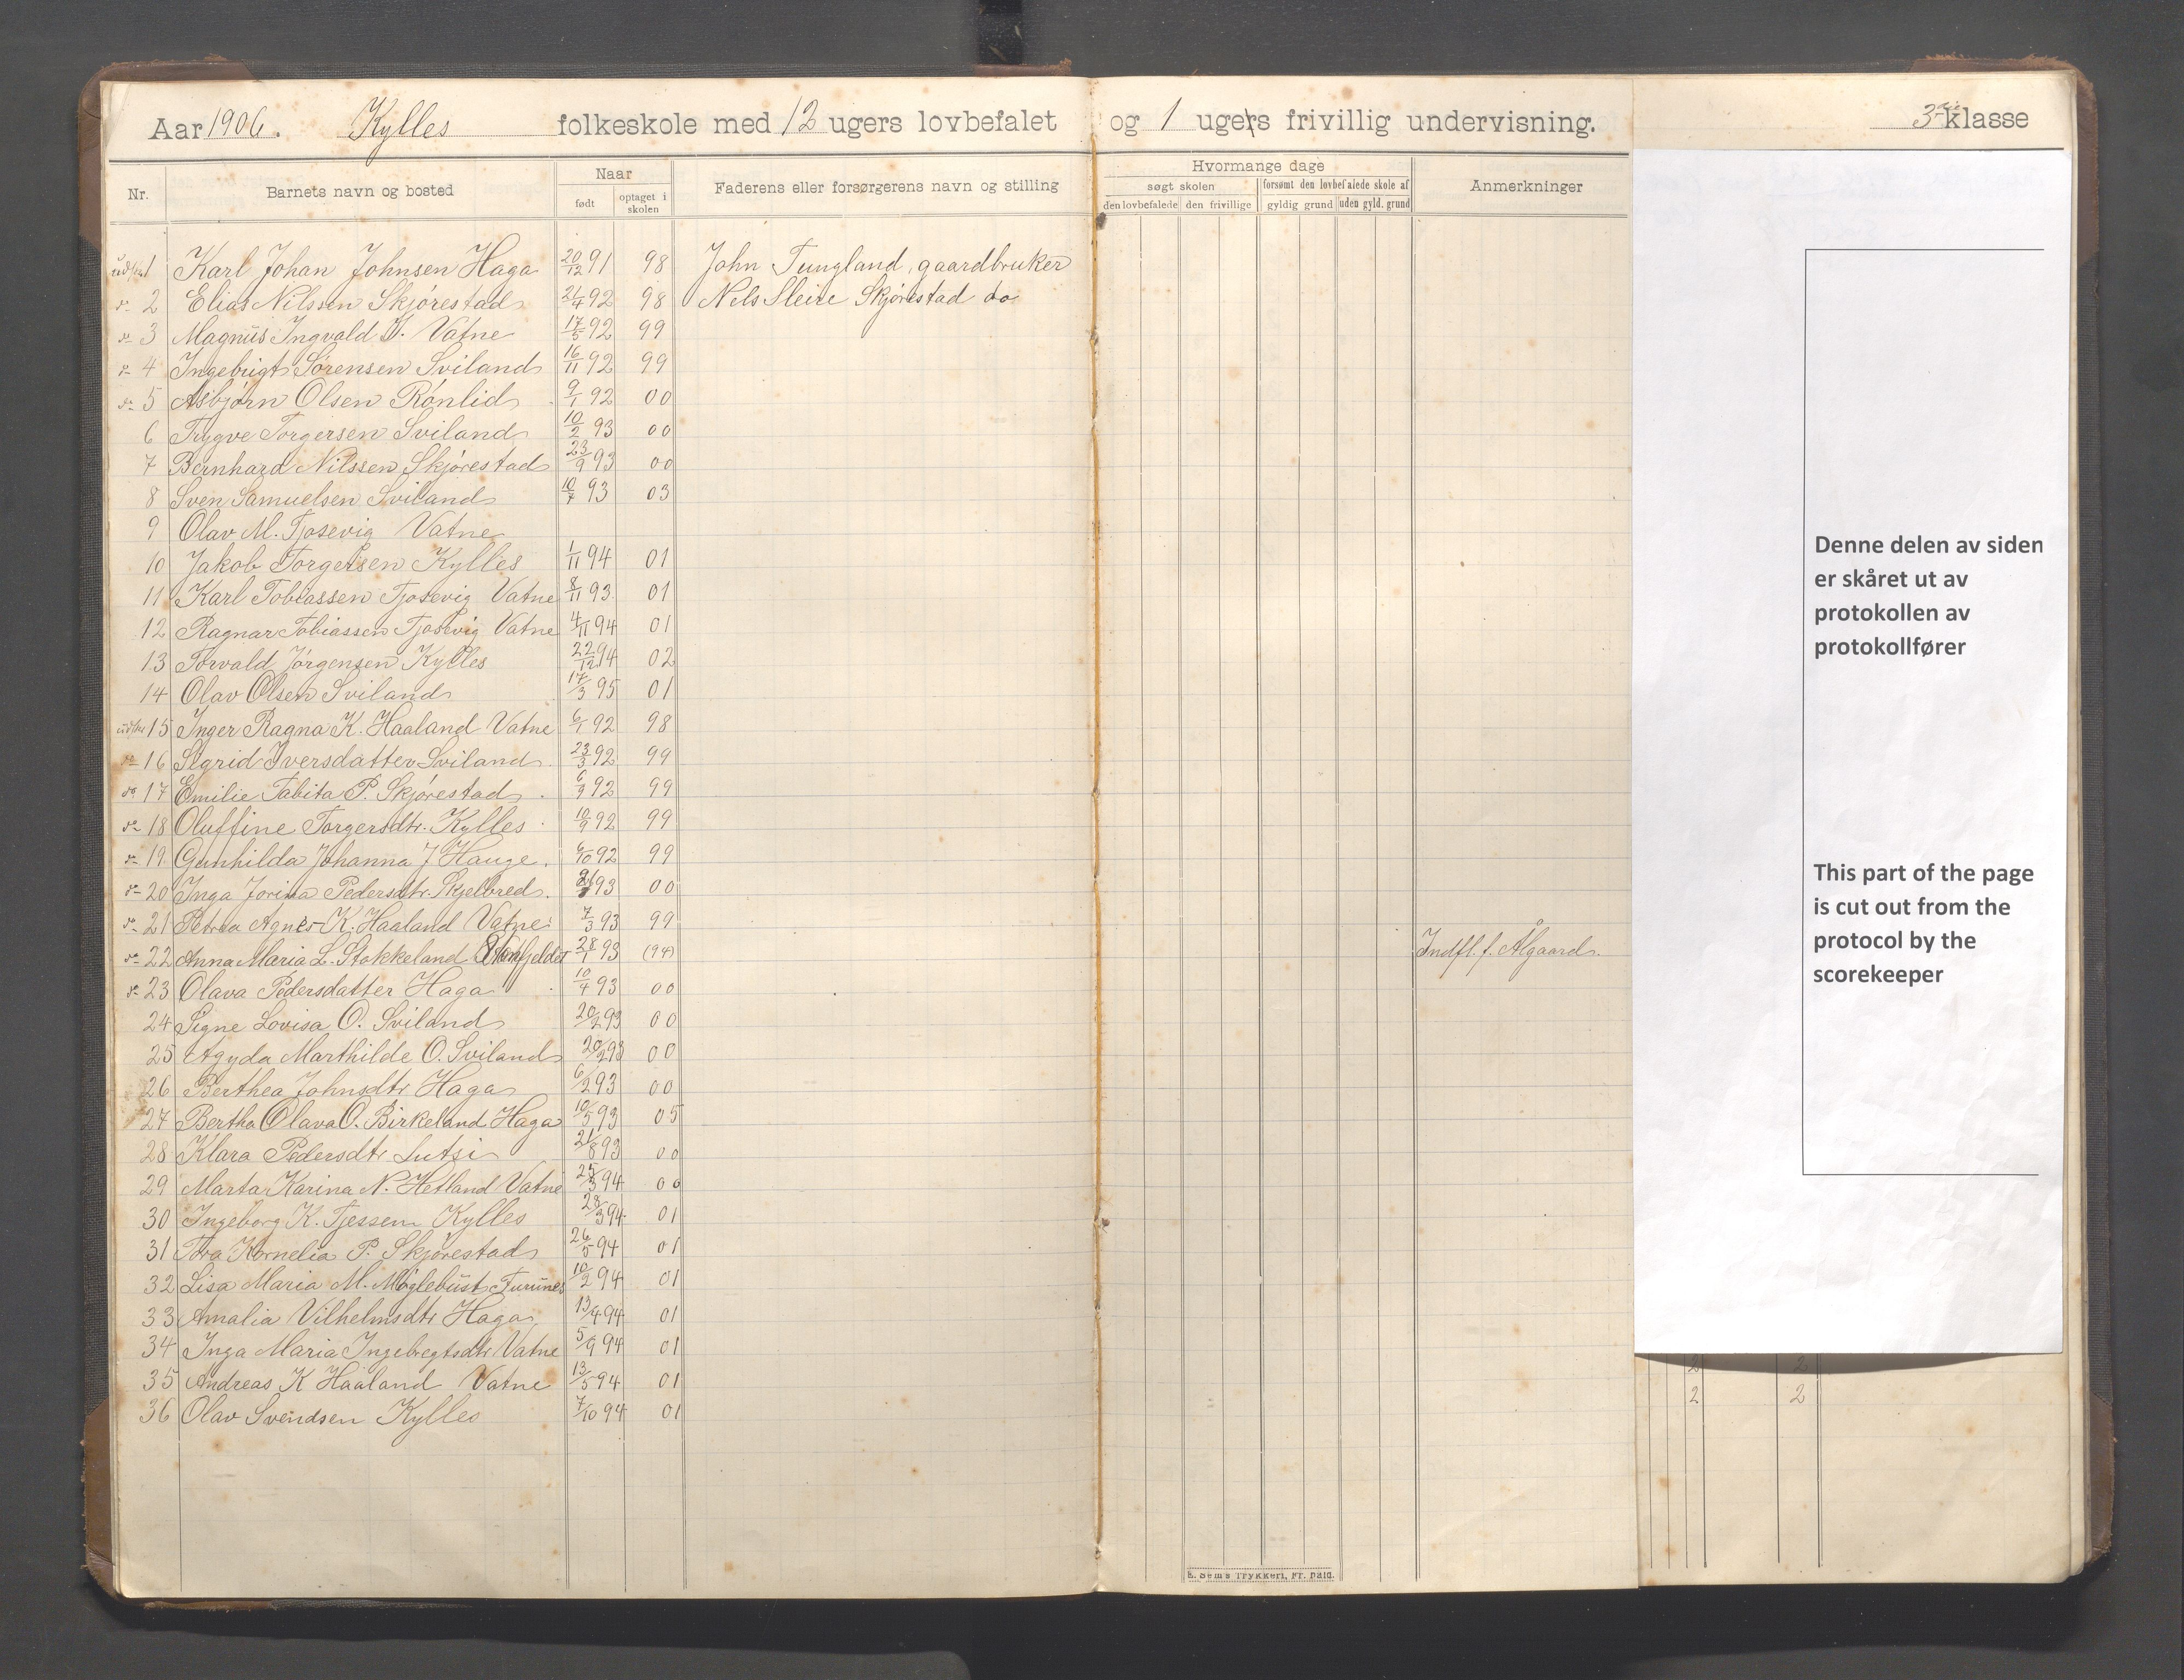 Aar 1906. Kylles folkeskole med 12 ugers lovbefalet og 1 ugers frivillig undervisning. 3die klasse
Nr. Barnets navn og bosted Naar født optaget i skolen Faderens eller forsørgerens navn og stilling Hvormange dage søgt skolen den lovbefalede den frivillige forsømt den lovbefalede skole af gyldig grund uden gyld. grund Anmerkninger
udskr 1 Karl Johan Johnsen Haga 20/12 91 98 John Tungland, gaardbruker
do 2 Elias Nilssen Skjørestad 21/4 92 98 Nels Sleire Skjørestad do
do 3 Magnus Ingvald K. Vatne 17/5 92 99
do 4 Ingebrigt Sørensen Sviland 16/11 92 99
do 5 Asbjørn Olsen Rønlid 9/1 92 00
6 Trygve Torgersen Sviland 10/2 93 00
7 Bernhard Nilssen Skjørestad 23/9 93 00
8 Sven Samuelsen Sviland 10/7 93 03
9 Olav M. Tjosevig Vatne
10 Jakob Torgersen Kylles 1/11 94 01
11 Karl Tobiassen Tjosevig Vatne 8/11 93 01
12 Ragnar Tobiassen Tjosevig Vatne 4/11 94 01
13 Torvald Jørgensen Kylles 22/12 94 02
14 Olav Olsen Sviland 17/3 95 01
udskr 15 Inger Ragna K. Haaland Vatne 6/1 92 98
do 16 Sigrid Iversdatter Sviland 23/3 92 99
do 17 Emilie Tabita P. Skjørestad 6/9 92 99
do 18 Oluffine Torgersdtr. Kylles 10/9 92 99
do 19 Gunhilda Johanna J Hauge. 6/10 92 99
do 20 Inga Jorina Pedersdtr. Skjelbred. 93 00
do 21 Petrea Agnes K. Haaland Vatne 7/3 93 99
do 22 Anna Maria L. Stokkeland 28/1 93 (94) Indfl. f. Ålgaard.
do 23 Olava Pedersdatter Haga 10/4 93 00
24 Signe Lovisa O. Sviland 20/2 93 00
25 Agyda Marthilde O. Sviland 20/2 93 00
26 Berthea Johnsdtr Haga 6/2 93 00
27 Bertha Olava O. Birkeland Haga 10/5 93 05
28 Klara Pedersdtr Lutsi 21/8 93 00
29 Marta Karina N. Hetland Vatne 25/3 94 00
30 Ingeborg K. Tjessem Kylles 28/3 94 01
31 Tora Kornelia P. Skjørestad 26/5 94 01
32 Lisa Maria M. Møglebust Furunes 10/2 94 01
33 Amalia Vilhelmsdtr Haga 13/4 94 01
34 Inga Maria Ingebregtsdtr Vatne 5/9 94 01
35 Andreas K Haaland Vatne 13/5 94 01
36 Olav Svendsen Kylles 7/10 94 01
E. Sem's Trykkeri, Fr.hald.
Denne delen av siden
er skåret ut av
protokollen av
protokollfører
This part of the page
is cut out from the
protocol by the
scorekeeper
2 2
2 2